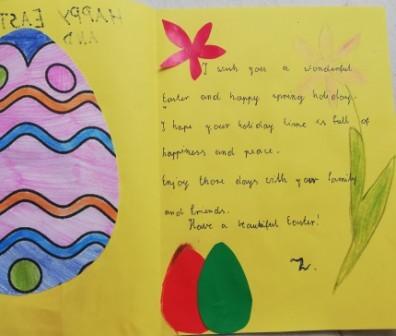 HAPPY EAST
AND
I wish you a wonderful
Easter and happy spring holiday.
I hope your holiday time is full of
happiness and peace.
Enjoy those days with your family
and friends.
Have a beautiful Easter!
Z.